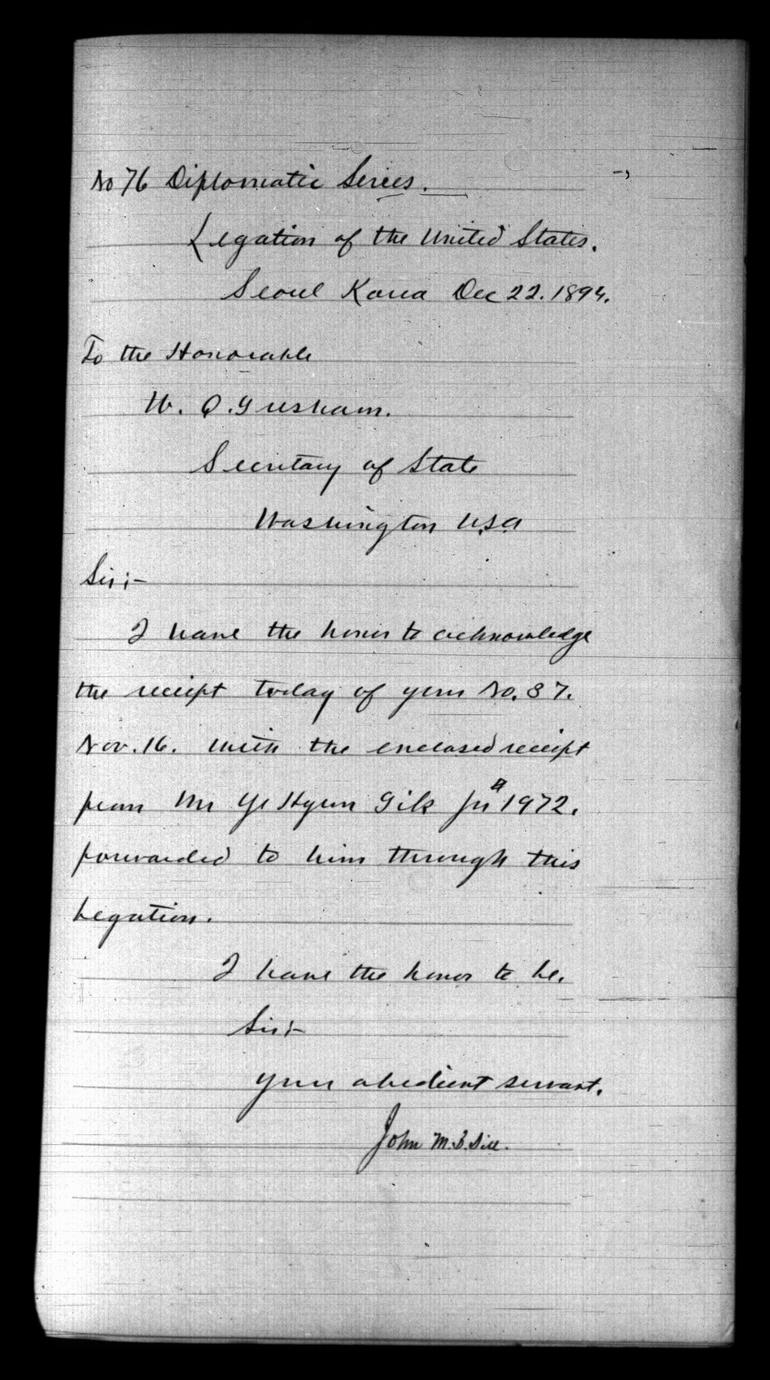 No 76 Diplomatic Series.
Legation of the United States.
Seoul Korea Dec 22. 1894.
To the Honorable
W. Q. Gresham.
Secretary of State
Washington U.S.A
Sir;-
I have the honor to acknowledge
the receipt today of your No. 87.
Nov. 16. with the enclosed receipt
from Mr Ye Hyun Gik for $1972.
forwarded to him through this
Legation.
I have the honor to be,
Sir:-
your obedient servant,
John M. B. Sill.